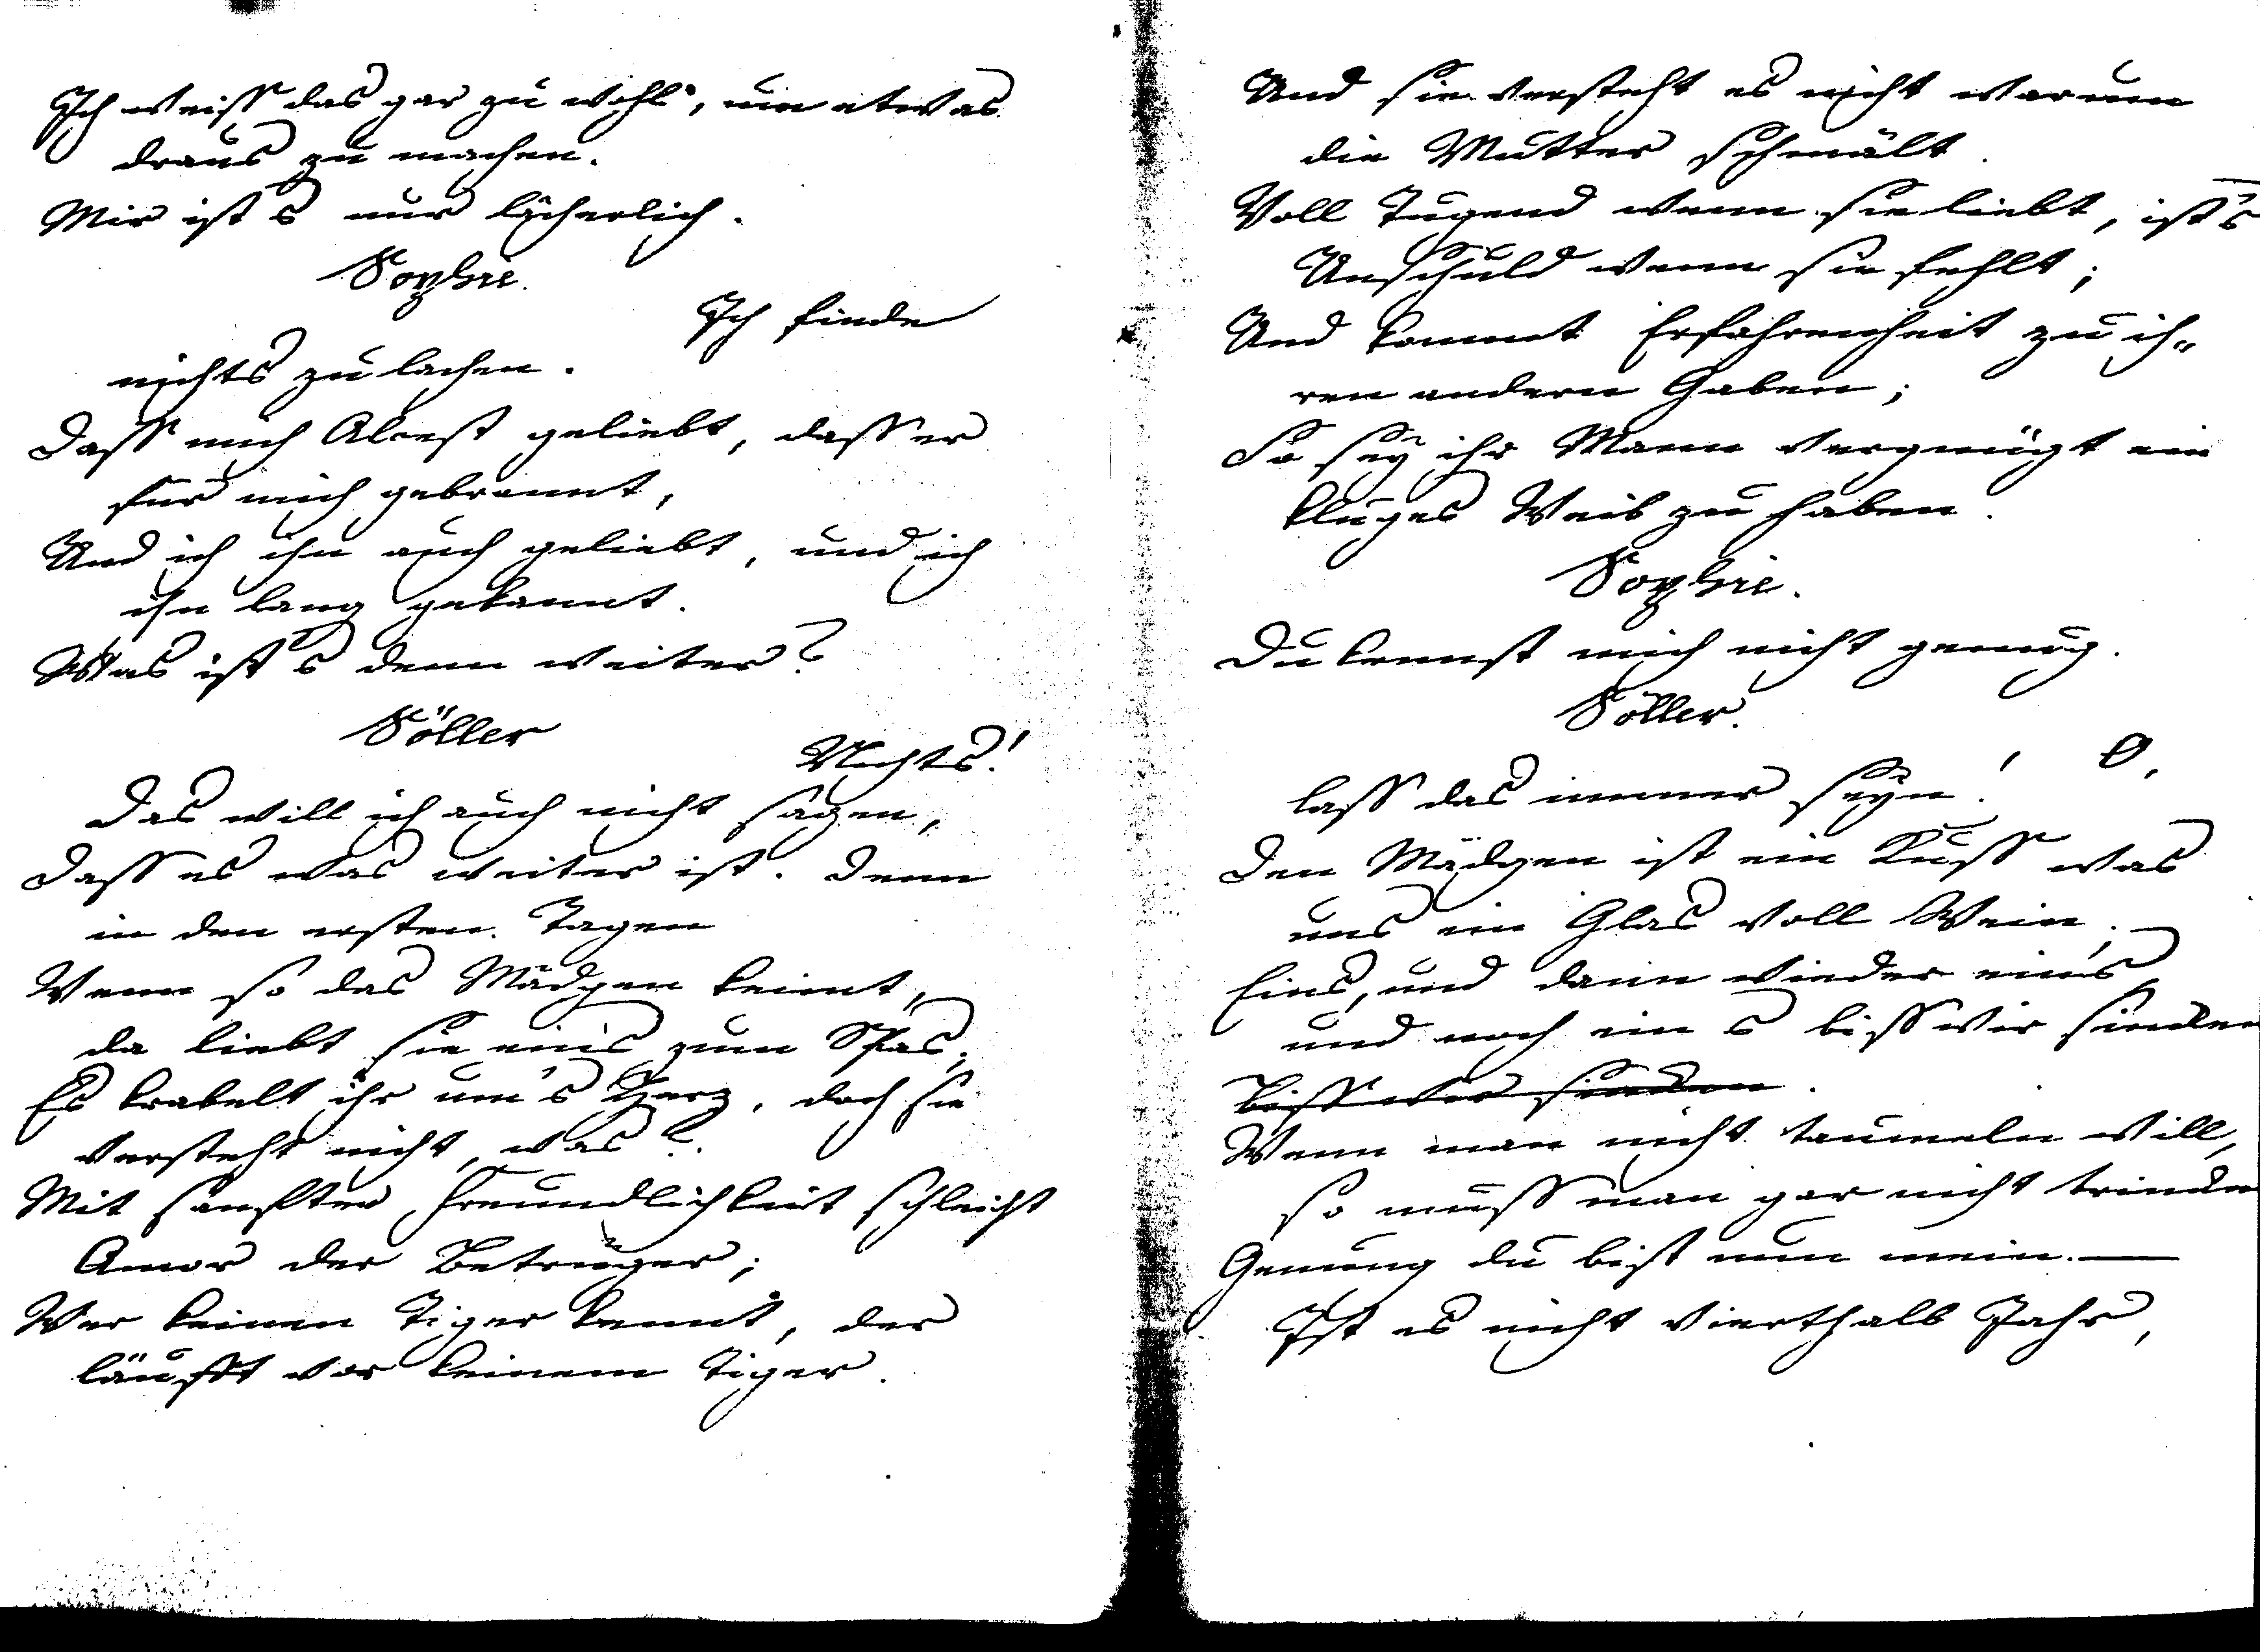 Ich weiss das gar zu wohl, um etwas
draus zu machen.
Mir ist's nur lächerlich.
Sophie.
Ich finde
nichts zu lachen.
Dass mich Alcest geliebt, dass er
für mich gebrannt,
Und ich ihn auch geliebt, und ich
ihn lang gekannt.
Was ist's denn weiter?
Söller
Nichts!
Das will ich auch nicht sagen,
Dass es was weiter ist. Denn
in den ersten Tagen
Wenn so das Mädgen keimt,
da liebt sie eins zum Spas,
Es krabelt ihr um's Herz, doch sie
versteht nicht, was?
Mit sanfter Freundlichkeit schleicht
Amor der Betrüger;
Wer keinen Tiger kennt, der
läufft vor keinem Tiger.
Und sie versteht es nicht warum
die Mutter schmält.
Voll Tugend wenn sie liebt, ist's
Unschuld wenn sie fehlt;
Und kommt Erfahrenheit zu ih„
ren andern Gaben;
So sey ihr Mann vergnügt ein
kluges Weib zu haben.
Sophie.
Du kennst mich nicht genug.
Söller.
O,
lass das immer seyn!
Den Mädgen ist ein Kuss was
uns ein Glas voll Wein,
Eins, und dann wieder eins,
und noch ein's biss wir sincken
biss wir sincken.
Wenn man nicht taumeln will,
so muss man gar nicht trincken
Genung du bist nun mein. —
Ist es nicht vierthalb Jahr,